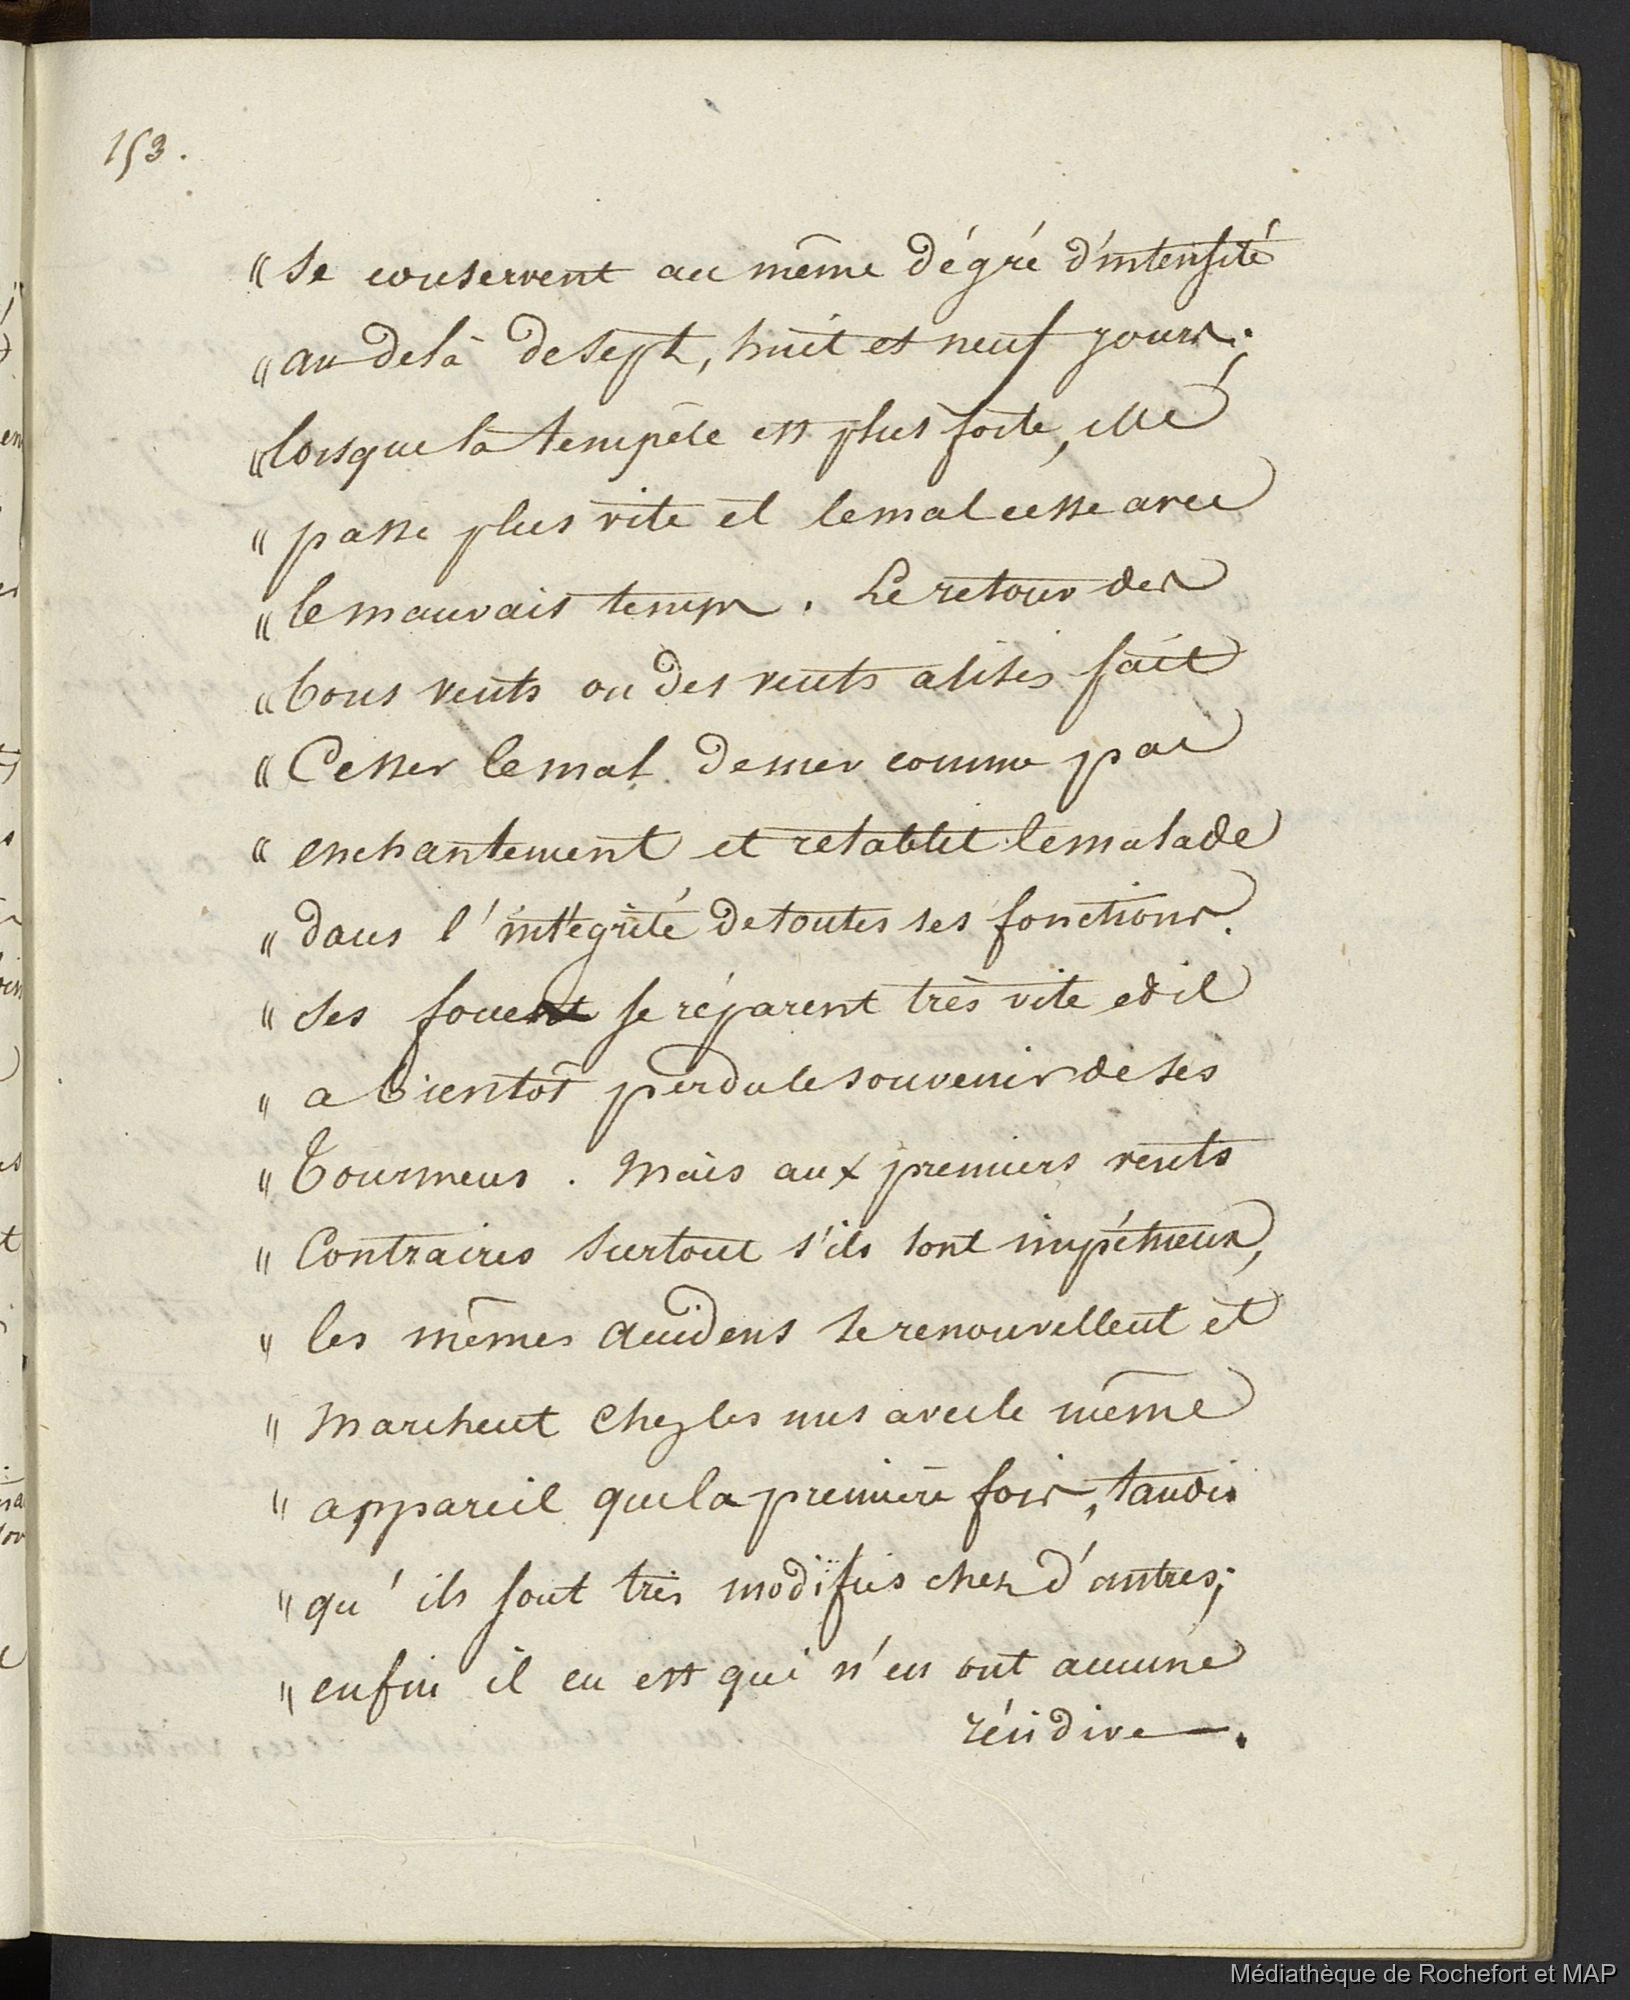 153.
« se conservent au même dégré d'intensité
« au delà de sept, huit et neuf jours;
« lorsque la tempête est plus forte, elle
« passe plus vite et le mal cesse avec
« le mauvais temps. Le retour des
« bons vents ou des vents alisés fait
« Cesser le mal de mer comme par
« enchantement et retablit le malade
« dans l'intégrité de toutes ses fonctions.
« Ses forces se réparent très vite et il
« a bientôt perdu le souvenir de ses
« tourmens. Mais aux premiers vents
« Contraires surtout s'ils sont impétueux,
« les mêmes accidens se renouvellent et
« Marchent chez les uns avec le même
« appareil que la première fois, tandis
« qu'ils sont très modifiés chez d'autres;
« enfin il en est qui n'en ont aucune
récidive.
Médiathèque de Rochefort et MAP